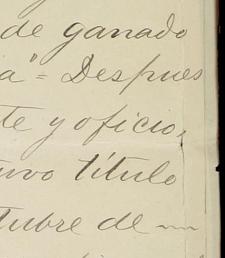 de ganado
a" = Despues
te y oficio,
uvo título
tubre de